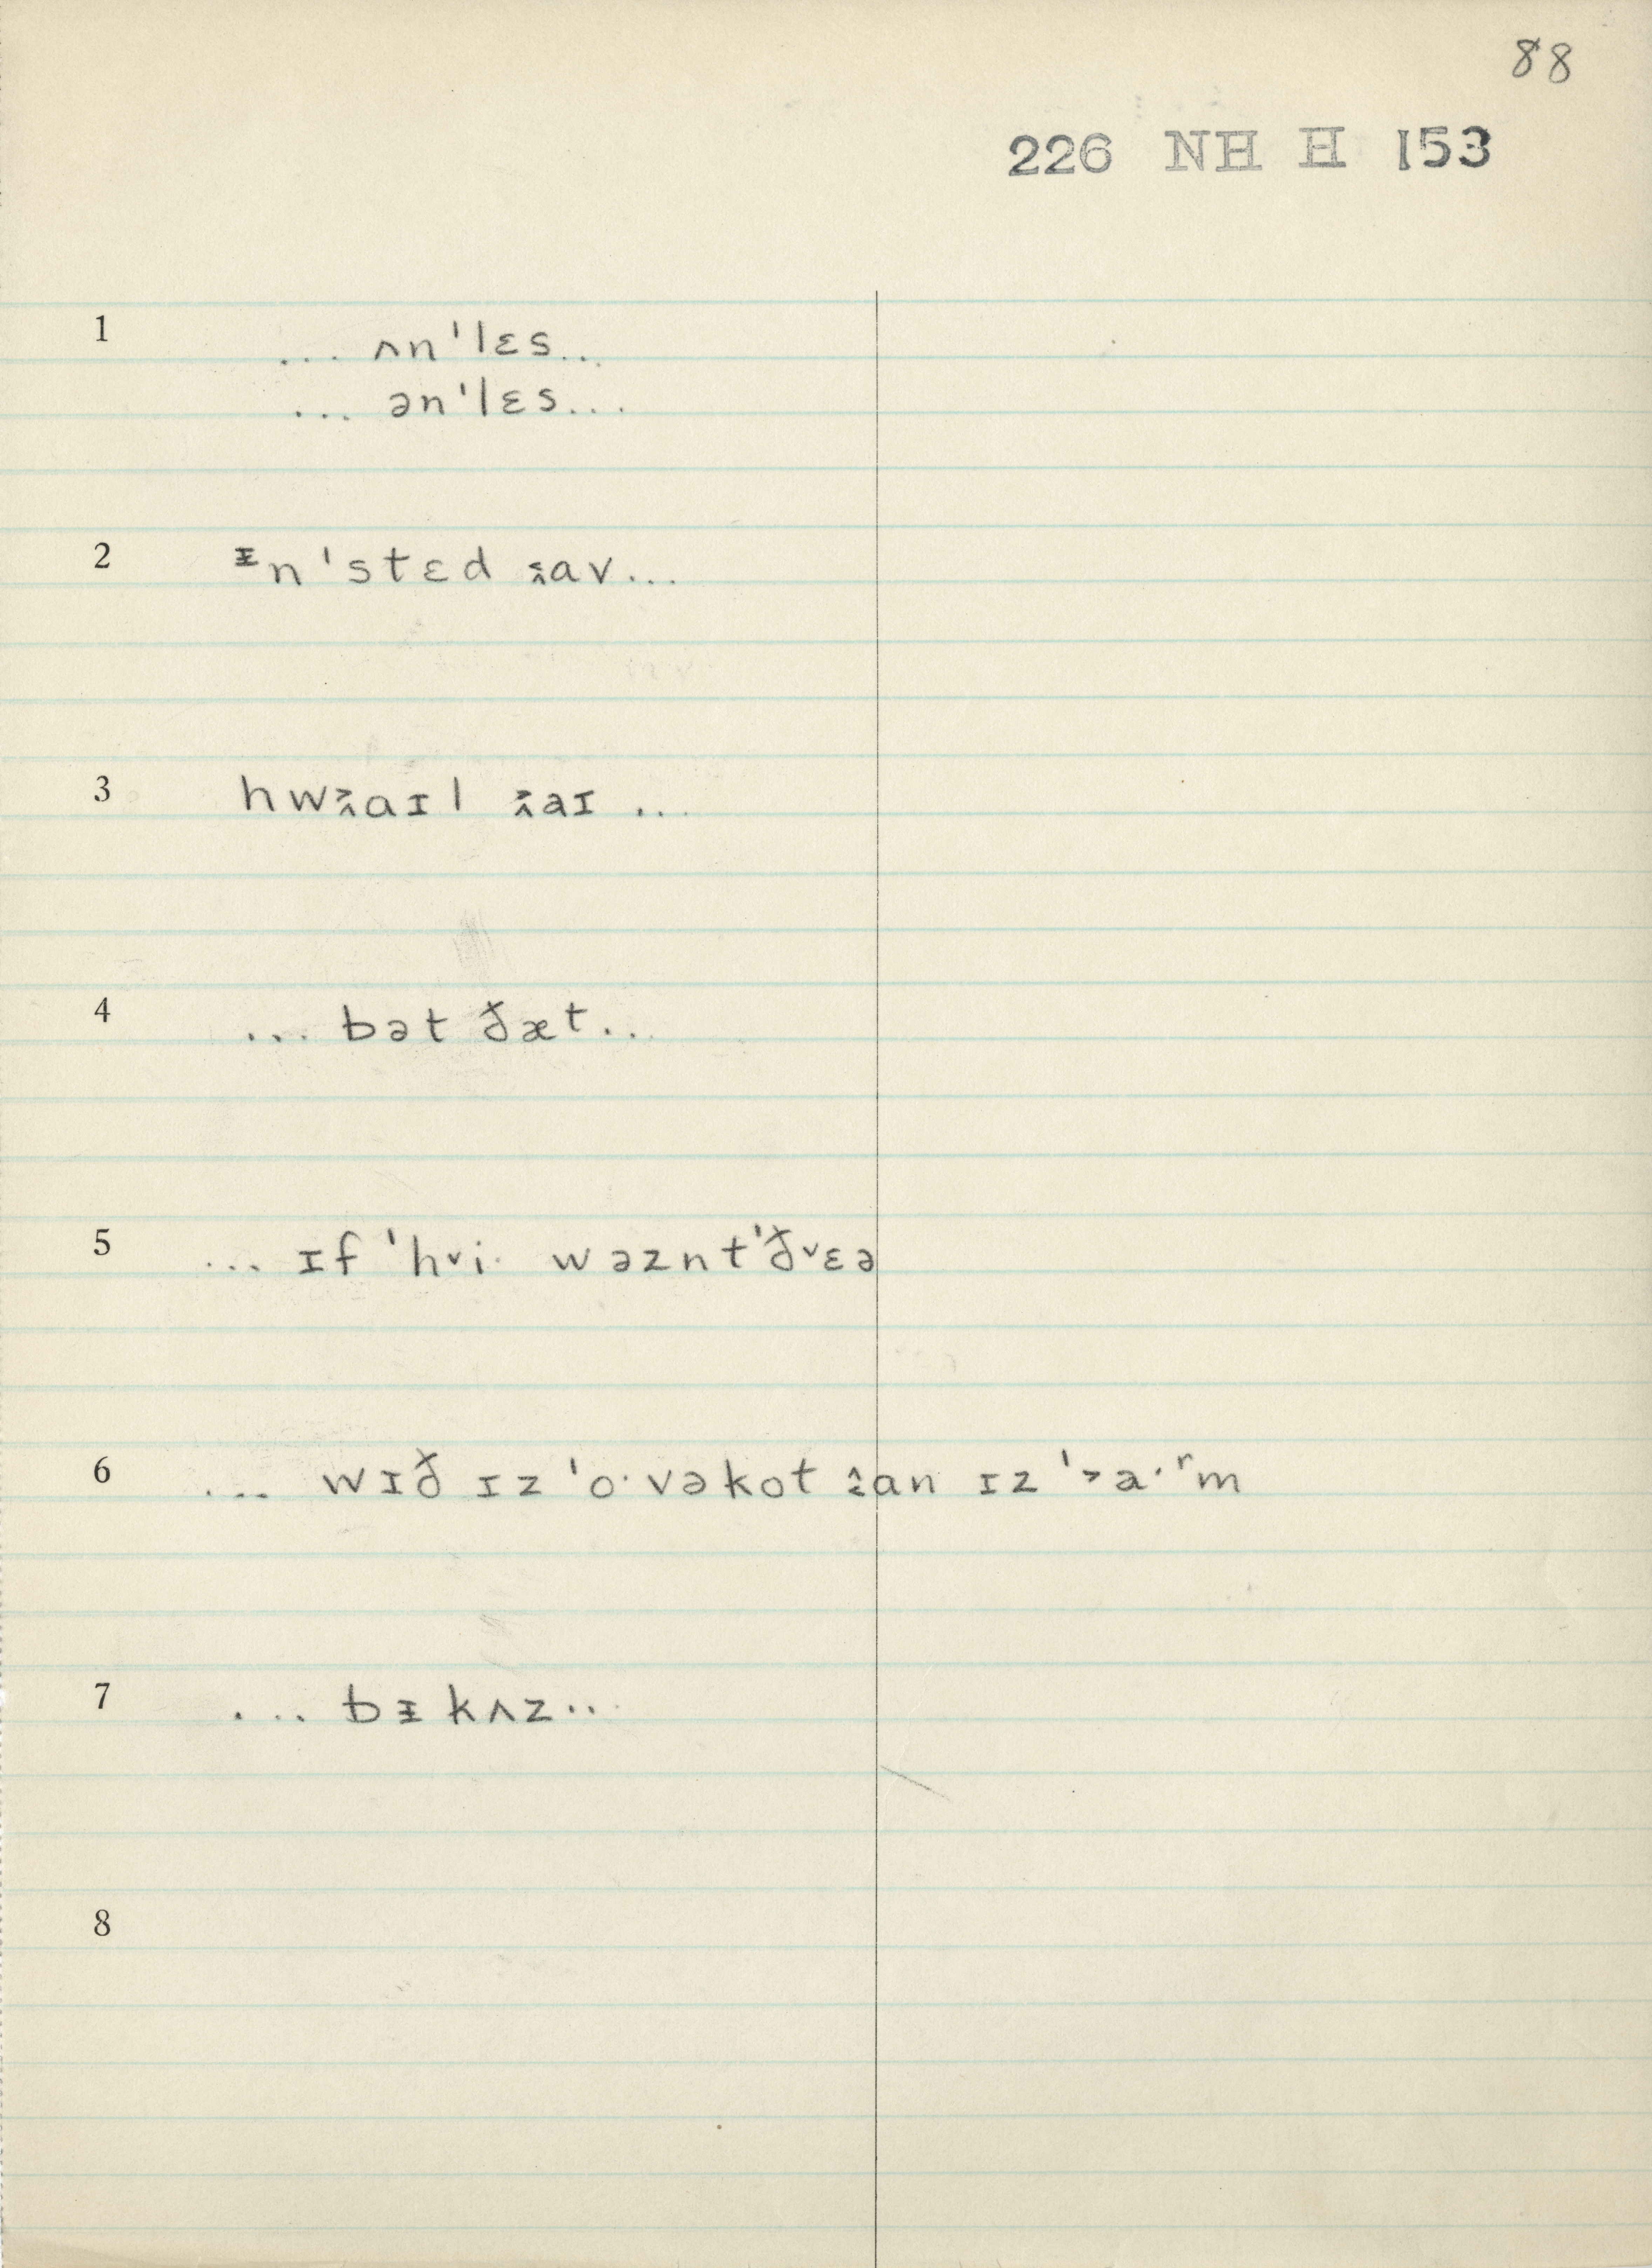 88
226 NH H 153
1 ... ʌnˈlɛs..
... ənˈlɛs...
2 ᵻnˈstɛd av...
3 hwaɪl aɪ ...
4 ... bət ðæt..
5 ... ɪf ˈh˅i· wəzntˈð˅ɛə
6 ... wɪð ɪz ˈo·vəkot an ɪz ˈ˃a·ʳm
7 ... bᵻkʌz..
8